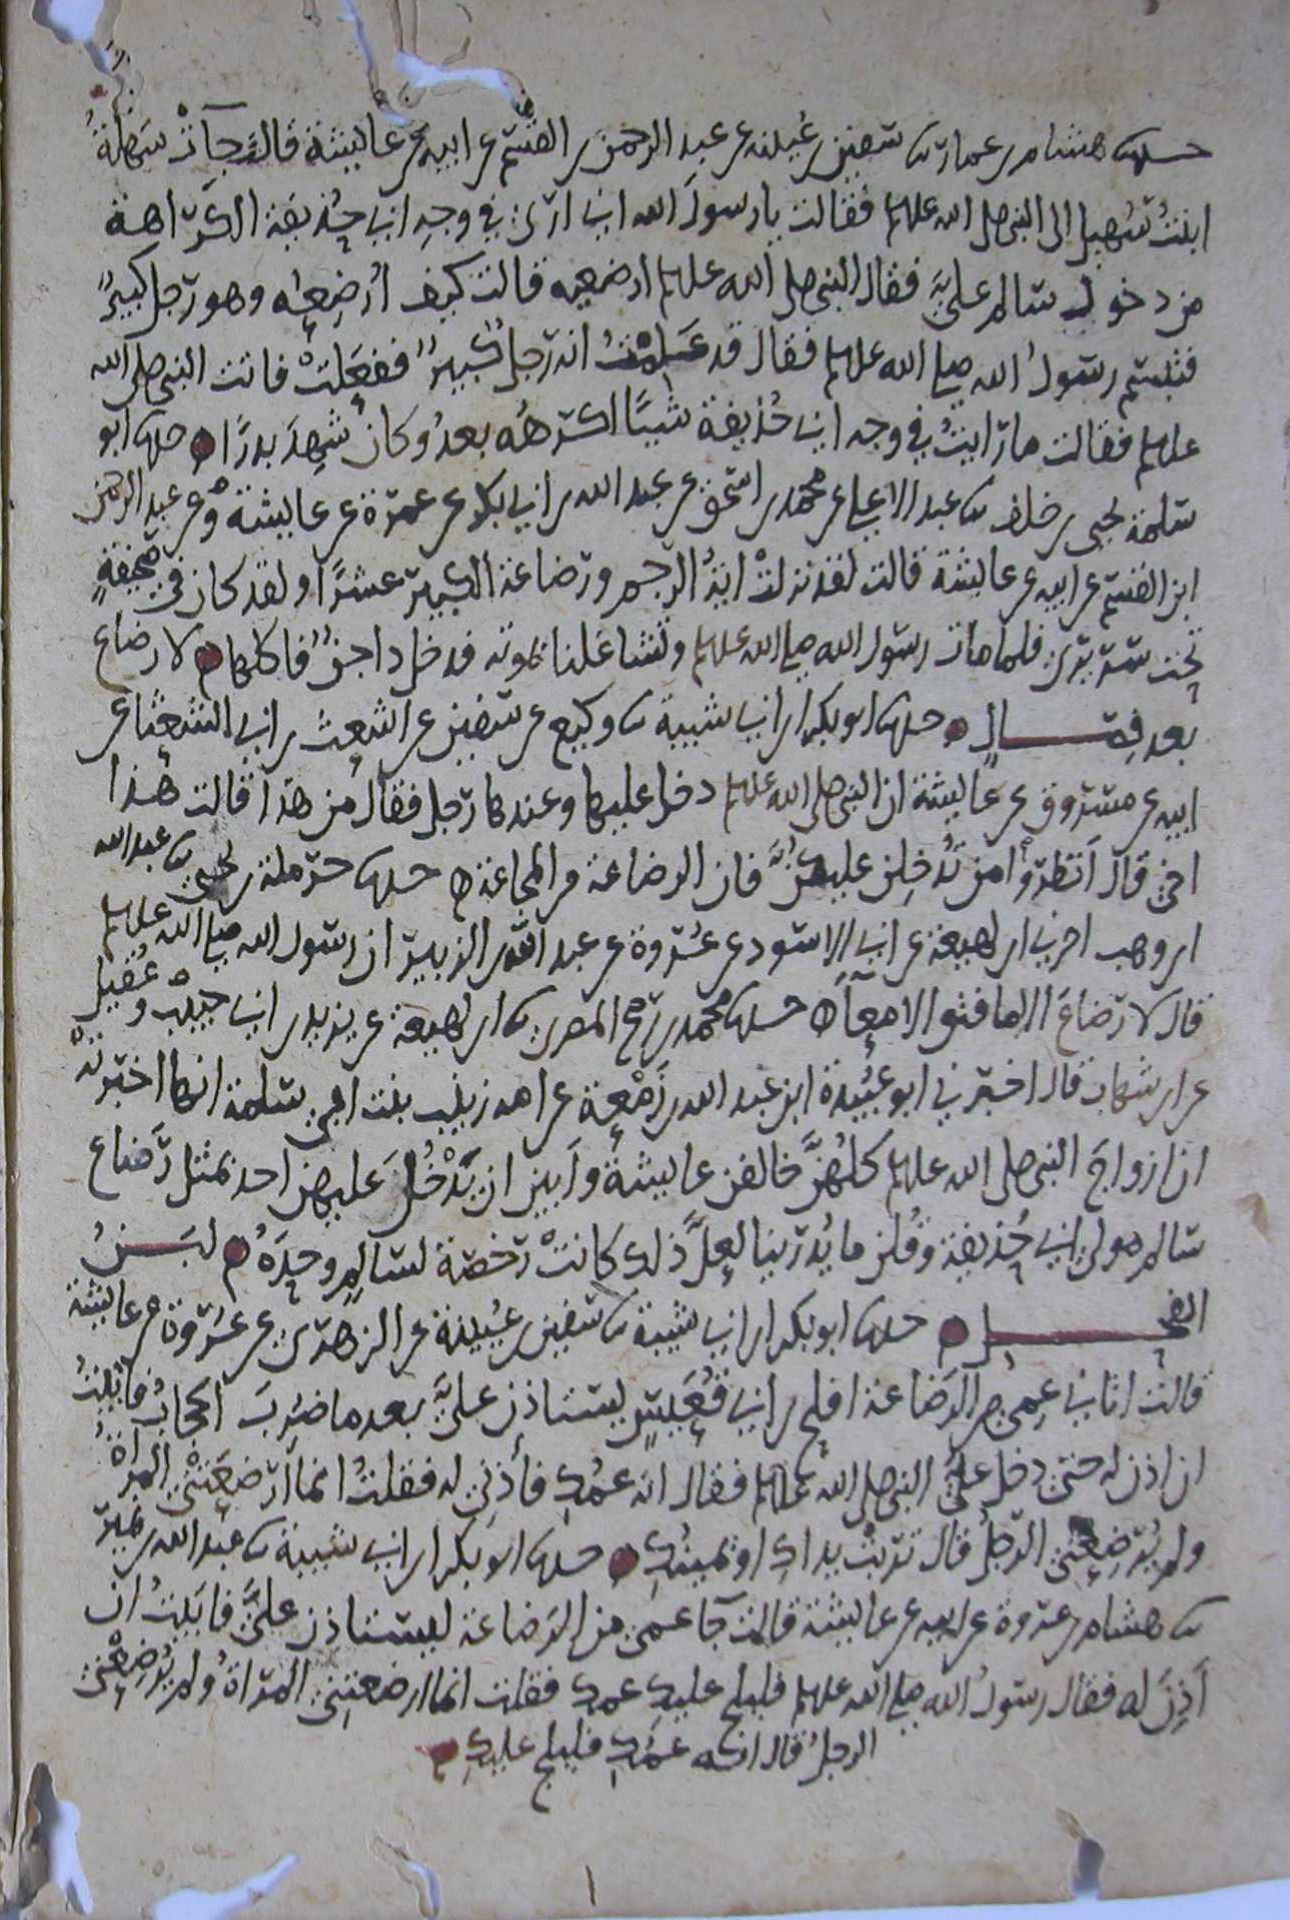 حدثنا هشام بن عمار ثنا سفين بن عيينه عن عبد الرحمن بن القسم عن ابيه عن عايشة قالت جآت سهلة
ابنت سُهيل الى النبي صلى الله عليه وسلم فقالت يا رسولَ الله اني ارى في وجهِ ابي حُذيفة الكراهة
من دخول سالم عليَّ فقال النبي صلى الله عليه وسلم ارضعيه قالت كيف أُرضِعُه وهو رجل كبيرٌ
فتبسم رسولُ الله صلى الله عليه وسلم فقال قد عَلِمْتُ انه رجل كبيرٌ ففعَلتْ فاتت النبي صلى الله
عليه وسلم فقالت ما رايتُ في وجه ابي حُذيفة شيًا اكرهُه بعدُ وكان شهِدَ بدرًا ه حدثنا ابو
سلمة يحيى بن خلف ثنا عبد الاعلى عن محمد بن اسحق عن عبد الله بن ابي بكر عن عمرة عن عايشة وعن عبد الرحمن
ابن القسم عن ابيه عن عايشة قالت لقد نزلتْ ايةُ الرجم ورضاعة الكبير عشرًا ولقد كان في صحيفةٍ
تحت سريري فلما مات رسول الله صلى الله عليه وسلم وتشاغلنا بموته فدخل داجنٌ فاكلها ه لا رضاع
بعد فِصـــال ه حدثنا ابو بكر ابن ابي شيبة ثنا وكيع عن سفين عن اشعث بن ابي الشعثا عن
ابيه عن مسروق عن عايشة ان النبي صلى الله عليه وسلم دخل عليها وعندها رجل فقال من هذا قالت هذا
اخي قال اَنظرو امن تُدخِلن عليكنَّ فان الرضاعة من المجاعة ه حدثنا حرملة بن يحيى ثنا عبد الله
ابن وهب اخبرني ابن لهيعة عن ابي الاسود عن عُروة عن عبد الله بن الزبير ان رسول الله صلى الله عليه وسلم
قال لا رضاعَ الا ما فتق الامعآ ه حدثنا محمد بن رمح المصري ثنا ابن لهيعة عن يزيد بن ابي حبيب وعُقيل
عن ابن شهاب قال اخبرني ابو عُبيدة ابن عبد الله بن زَمْعة عن امه زينب بنت ابي سلمة انها اخبرته
ان ازواجَ النبي صلى الله عليه وسلم كلهُنَّ خالفن عايشة وابين ان يَدْخُلَ عليهن احد بمثل رَضاع
سالم مولى ابي حُذيفة وقُلن ما يُدرينا لعلَّ ذلك كانتْ رخصة لسالمٍ وحدَهُ ه لبـــنُ
الفحـــل ه حدثنا ابو بكر ابن ابي شيبة ثنا سفين بن عُيينة عن الزهري عن عُروة عن عايشة
قالت اتاني عمي من الرَضاعة افلح بن ابي قُعَيسٍ يستاذن عليَّ بعد ما ضُرِبَ الحجابُ فابيتُ
ان اذن له حتى دخل عليَّ النبي صلى الله عليه وسلم فقال انه عمُّكِ فأذني له فقلتُ انما ارضعَتْني المراةُ
ولم يُرضِعْني الرجلُ قال تربتْ يداكِ او يمينُكِ ه حدثنا ابو بكر ابن ابي شيبة ثنا عبد الله بن نمير
ثنا هشام بن عروة عن ابيه عن عايشة قالت جآ عمي من الرَضاعة ليستاذن عليَّ فابَيتُ ان
آذنَ له فقال رسولُ الله صلى الله عليه وسلم فليلج عليكِ عمك فقلت انما ارضعتني المراةُ ولم يُرضِعْني
الرجلُ قال انه عَمُّكِ فليلج عليكِ ه